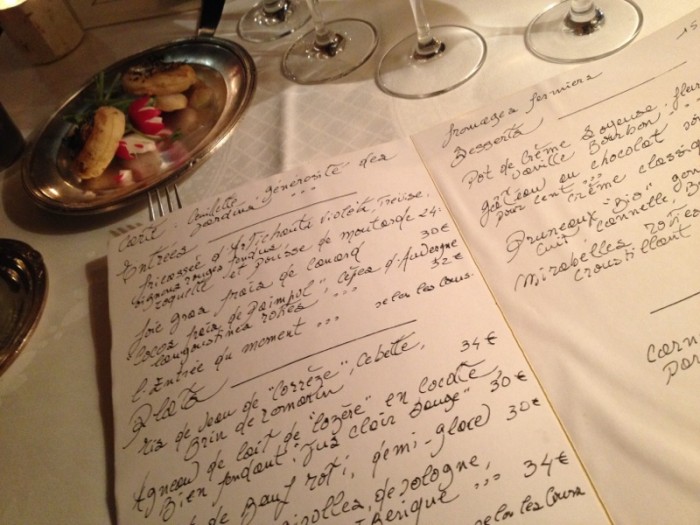 Carte. Cueillette "générosité" des
jardins
Entrées
fricassée d'artichauts violets, trévise,
oignons rouges fondus
roquette et pousse de moutarde 24.
foie gras frais de canard 30€
"cocos frais de Paimpol", cèpes d'Auvergne
langoustines roties ... 32€
l'Entrée du moment ... selon les cours.
Plats
ris de veau de "Corrèze", cebette,
brin de romarin 34€
Agneau de lait de "Lozère" en cocotte,
bien fondant. "Jus clair Sauge" 30€
de bœuf roti, demi-glace 30€
girolles, de sologne,
34€
selon les cours
fromages fermiers 15
Desserts
Pot de crème Soyeuse, fleur
vanille Bourbon
gâteau au chocolat
pour cent ... crème classique
Pruneaux "Bio"
cuit cannelle,
Mirabelles roties
croustillant